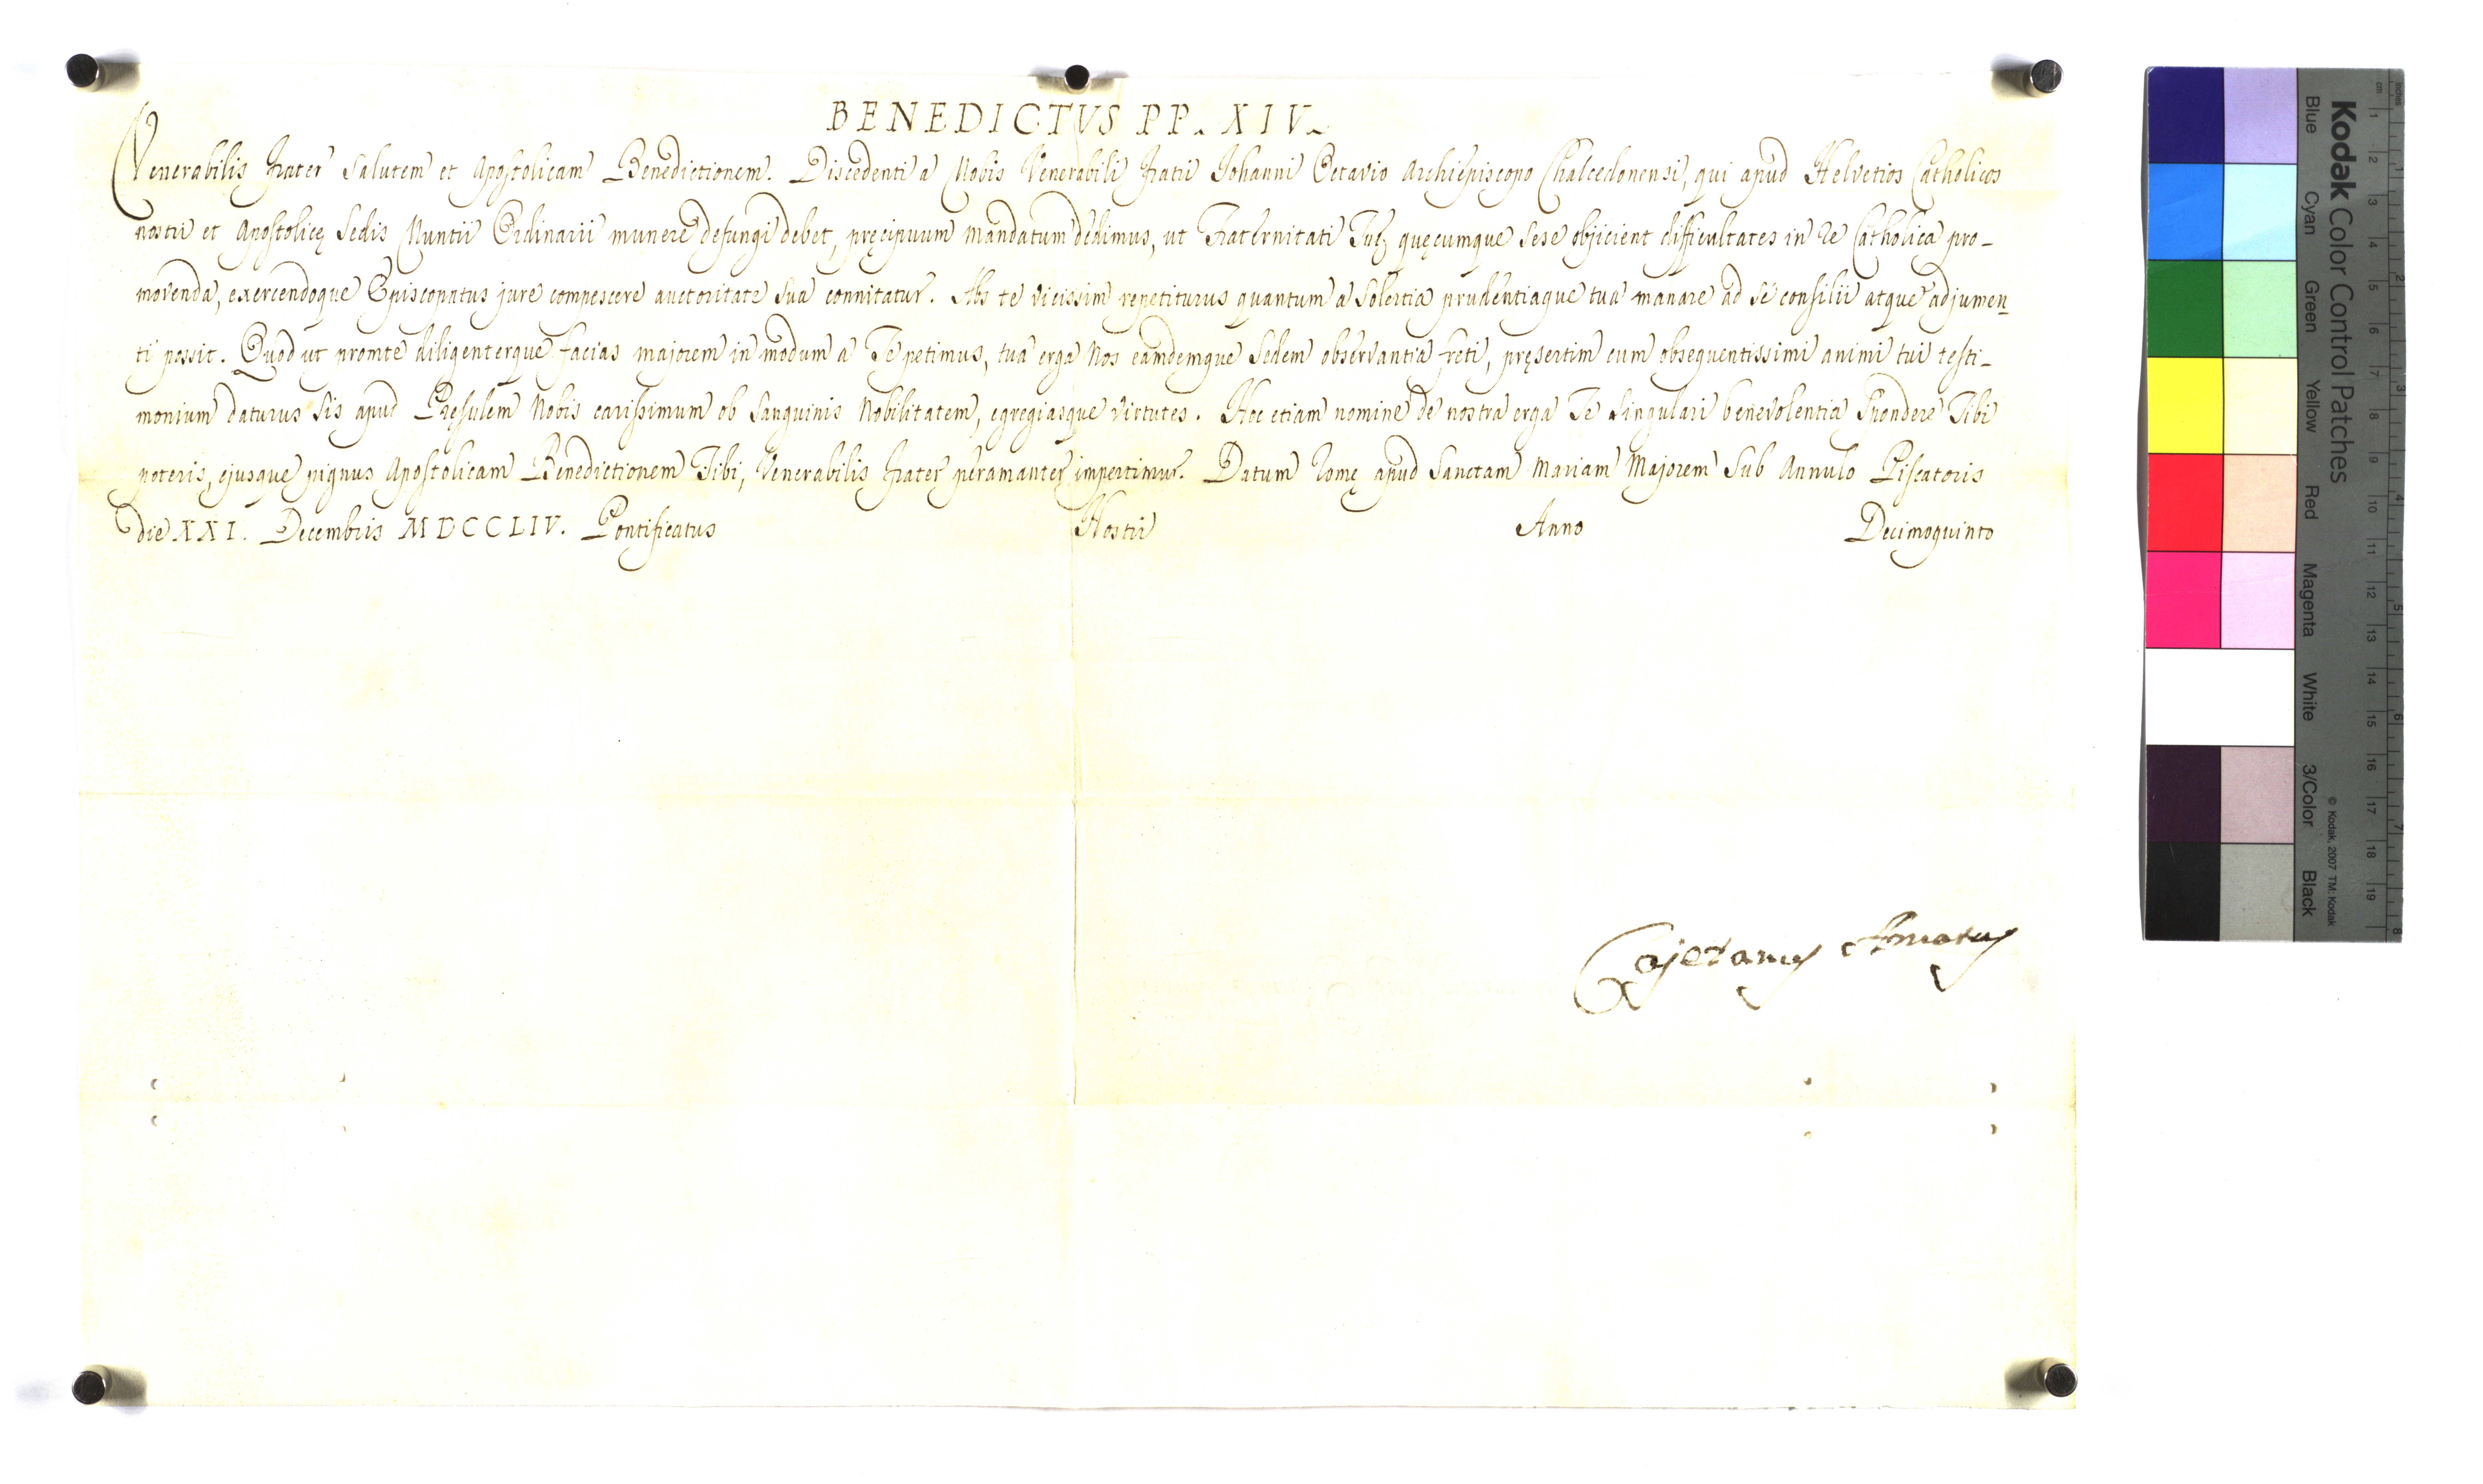 BENEDICTVS PP. XIV.
Venerabilis Frater Salutem et Apostolicam Benedictionem. Discedenti a Nobis Venerabili Fratri Johanni Octavio Archiepiscopo Chalcedonensi, qui apud Helvetios Catholicos
nostri et Apostolicę Sedis Nuntii Ordinarii munere defungi debet, pręcipuum mandatum dedimus, ut Fraternitati Tuę quęcumque sese objicient difficultates in re Catholica pro-
movenda, exercendoque Episcopatus jure compescere auctoritate sua connitatur. Abs te vicissim repetiturus quantum a Solertia prudentiaque tua manare ad se consilii atque adjumen
ti possit. Quod ut promte diligenterque facias majorem in modum a Te petimus, tua erga Nos eamdemque Sedem observantia freti, pręsertim cum obsequentissimi animi tui testi-
monium daturus sis apud Pręsulem Nobis carissimum ob Sanguinis Nobilitatem, egregiasque virtutes. Hoc etiam nomine de nostra erga Te singulari benevolentia Spondere Tibi
poteris, ejusque pignus Apostolicam Benedictionem Tibi, Venerabilis Frater peramanter impertimur. Datum Romę apud Sanctam Mariam Majorem Sub Annulo Piscatoris
die XXI. Decembris MDCCLIV. Pontificatus Nostri Anno Decimoquinto
Cajetanus Amatus
Kodak Color Control Patches
Blue Cyan Green Yellow Red Magenta White 3/Color Black
© Kodak, 2007 TM: Kodak
cm 1 2 3 4 5 6 7 8 9 10 11 12 13 14 15 16 17 18 19
inches 1 2 3 4 5 6 7 8